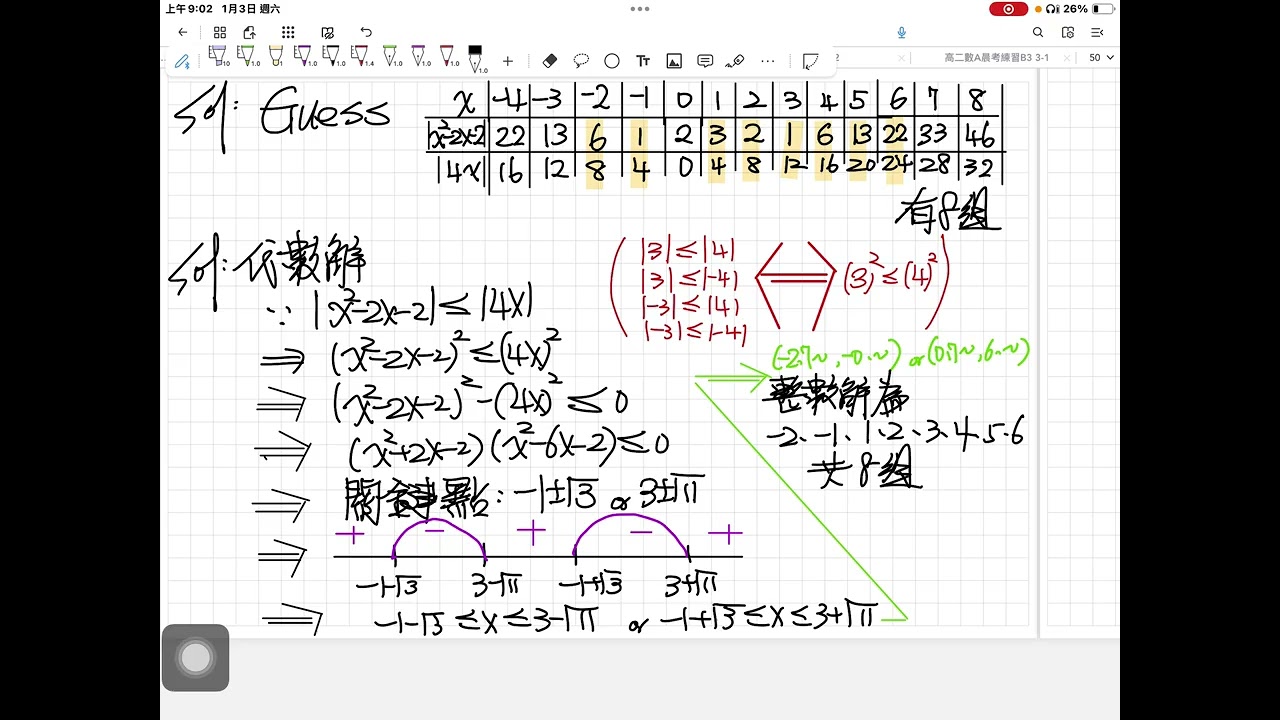 上午9:02 1月3日 週六
26%
Tт
高二數A晨考練習B3 3-1
50
1.0 1.0 1 1.0 1.0 1.4 1.0 1.0 1.0 1.0
sol: Guess
x -4 -3 -2 -1 0 1 2 3 4 5 6 7 8
|x²-2x-2| 22 13 6 1 2 3 2 1 6 13 22 33 46
|4x| 16 12 8 4 0 4 8 12 16 20 24 28 32
有8組
sol: 代數解
∵ |x²-2x-2| ≤ |4x|
⇒ (x²-2x-2)² ≤ (4x)²
⇒ (x²-2x-2)² - (4x)² ≤ 0
⇒ (x²+2x-2)(x²-6x-2) ≤ 0
⇒ 關鍵點: -1±√3 or 3±√11
⇒ + - + - +
-1-√3 3-√11 -1+√3 3+√11
⇒ -1-√3 ≤ x ≤ 3-√11 or -1+√3 ≤ x ≤ 3+√11
|3| ≤ |4|
|3| ≤ |-4|
|-3| ≤ |4|
|-3| ≤ |-4|
⟺ (3)² ≤ (4)²
(-2.7~, -0.~) or (0.7~, 6.~)
⇒ 整數解為
-2、-1、1、2、3、4、5、6
共8組